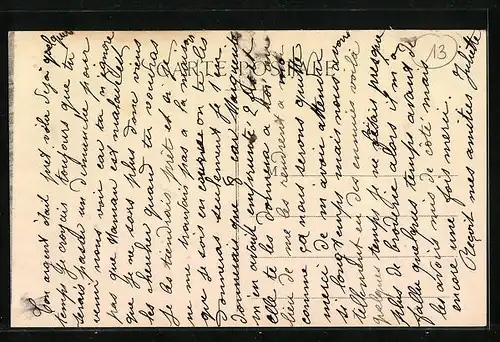 CARTE POSTALE
13
Ton argent était prêt, voila déjà quelque
temps. Je croyais toujours que tu
serais passer un dimanche pour
venir nous voir car tu n'ignore
pas que Maman est malade. C'est
que je me sens plus donc viens
les chercher quand tu voudras
Je les tiendrais prêt et si je
ne me trouvais pas à la maison
que je sois en course on te les
donneras seulement je t'en
donnerais que 9 car Marguerite
m'en avait emprunté 2 donc
elle te les donnera à toi au
lieu de me les rendrent à moi
comme ça nous serons quitte
merci de m'avoir attendu
si longtemps mais nous avons
tellement eu des ennuies voilà
quelques temps je ne faisais presque
plus de broderie alors il m'a
fallu quelques temps avant de
les avoir mis de côté mais
encore une fois merci.
Reçoit mes amitiés Juliette